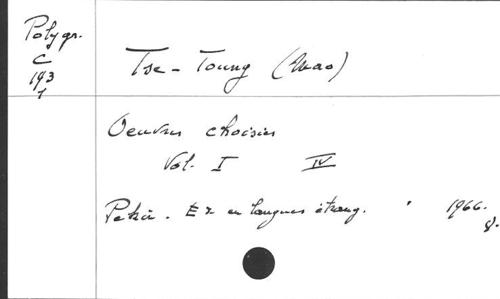 Polygr.
C
193
1
Tse-Toung (Mao)
Oeuvres choisies
Vol. I IV
Pekin. Ed en langues étrang. 1966.
8.